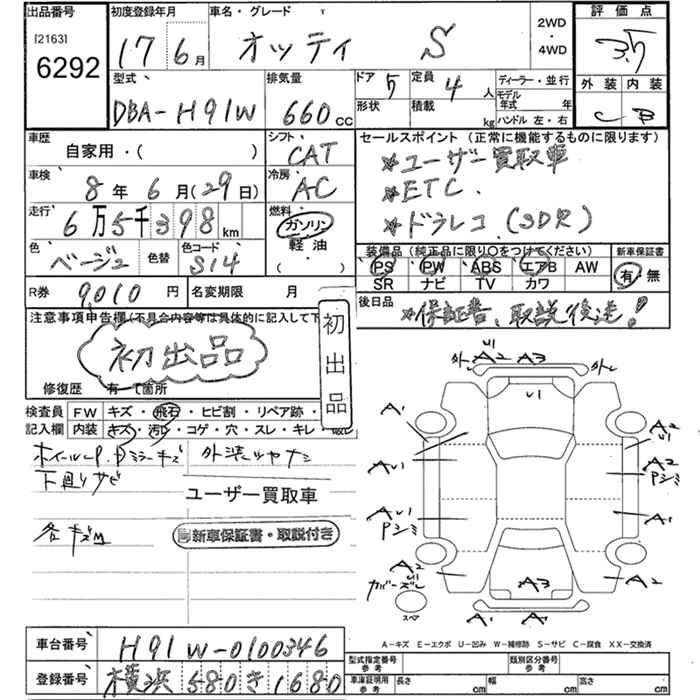 出品番号
[2163]
6292
初度登録年月
17年6月
車名・グレード
オッティ S
2WD
・
4WD
評価点
3.5
外装 内装
C B
型式
DBA-H91W
排気量
660 cc
ドア 5
定員 4 人
形状
積載 kg
ディーラー・並行
モデル年式 年
ハンドル 左・右
車歴
自家用・( )
シフト
CAT
セールスポイント(正常に機能するものに限ります)
☆ユーザー買取車
☆ETC.
☆ドラレコ(SDR)
車検
8年6月(29日)
冷房
AC
走行
6万5千398km
燃料
ガソリン
軽油
( )
色
ベージュ
色替
色コード
S14
装備品(純正品に限り〇をつけてください)
PS PW ABS エアB AW
SR ナビ TV カワ
新車保証書
有・無
R券
9,010円
名変期限 月
後日品
☆保証書、取説後送!
注意事項申告欄(不具合内容等は具体的に記入して下
初出品
初出品
修復歴 有 て箇所
検査員
記入欄
FW キズ・飛石・ヒビ割・リペア跡・
内装 キズ・汚レ・コゲ・穴・スレ・キレ・破レ
ホイールC.P.Dミラーキズ 外装ツヤナシ
下廻りサビ
ユーザー買取車
各キズ凹
新車保証書・取説付き
外レ A2 A3 外レ
U1
A1
A2
U1
AU1
A2
Pシミ
AU1
Pシミ
A1
A2
カバーズレ
A3
A2
スペア
A1 A1
A-キズ E-エクボ U-凹み W-補修跡 S-サビ C-腐食 XX-交換済
車台番号
H91W-0100346
登録番号
横浜580き1680
型式指定番号
参考
類別区分番号
参考
車庫証明用
参考
長さ cm
幅 cm
高さ cm